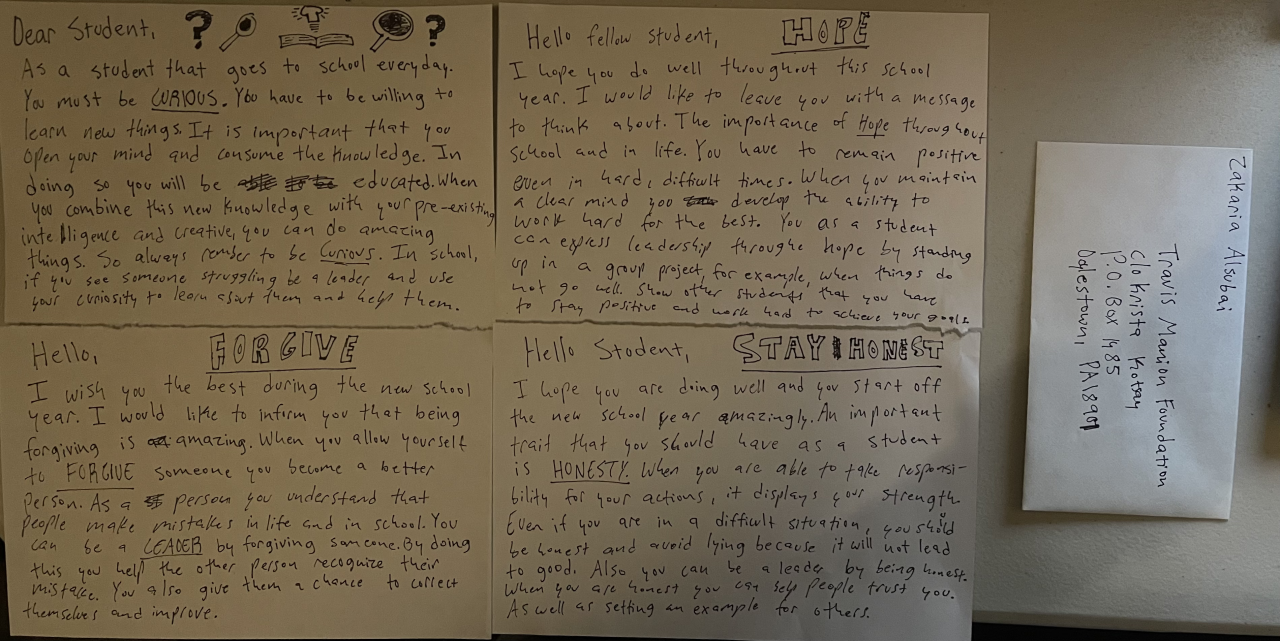 Dear Student, ? ?
As a student that goes to school everyday.
You must be CURIOUS. You have to be willing to
learn new things. It is important that you
open your mind and consume the knowledge. In
doing so you will be educated. When
you combine this new knowledge with your pre-existing
intelligence and creative, you can do amazing
things. So always remember to be Curious. In school,
if you see someone struggling be a leader and use
your curiosity to learn about them and help them.
Hello fellow student, HOPE
I hope you do well throughout this school
year. I would like to leave you with a message
to think about. The importance of Hope throughout
school and in life. You have to remain positive
even in hard, difficult times. When you maintain
a clear mind you develop the ability to
work hard for the best. You as a student
can express leadership throughe hope by standing
up in a group project, for example, when things do
not go well. Show other students that you have
to stay positive and work hard to achieve your goals.
Hello, FORGIVE
I wish you the best during the new school
year. I would like to inform you that being
forgiving is amazing. When you allow yourself
to FORGIVE someone you become a better
person. As a person you understand that
people make mistakes in life and in school. You
can be a LEADER by forgiving someone. By doing
this you help the other person recognize their
mistake. You also give them a chance to correct
themselves and improve.
Hello Student, STAY HONEST
I hope you are doing well and you start off
the new school year amazingly. An important
trait that you should have as a student
is HONESTY. When you are able to take responsi-
bility for your actions, it displays your strength.
Even if you are in a difficult situation, you should
be honest and avoid lying because it will not lead
to good. Also you can be a leader by being honest.
When you are honest you can help people trust you.
As well as setting an example for others.
Zakaria Alsubai
Travis Manion Foundation
c/o Krista Kotay
P.O. Box 1485
Doylestown, PA 18901